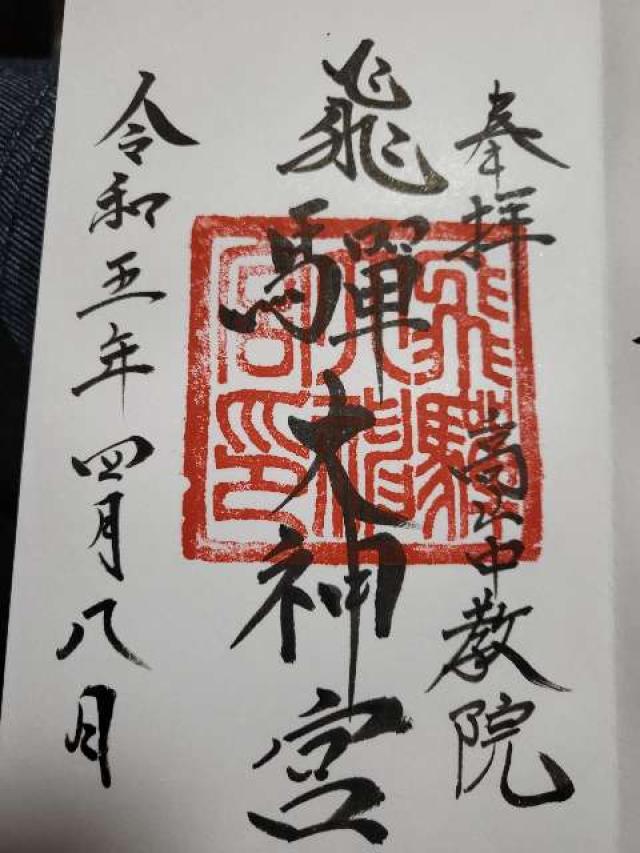 奉拝 高山中教院
飛驒大神宮
令和五年四月八日
飛驒
大神
宮印